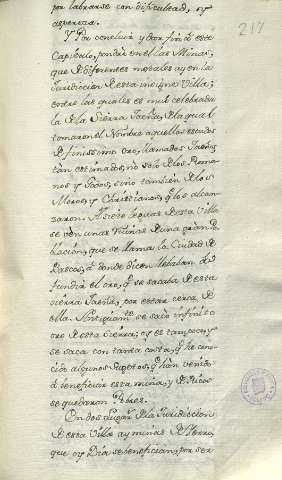 por labrarse con dificultad, y
aspereza.
217
Y por concluir, y dar fin á este
Capitulo, pondré en el las Minas,
que de diferentes metales ay en la
Jurisdiccion de esta insigne Villa;
entre las quales es mui celebrada
la de la Sierra Jaeña, de la qual
tomaron el Nombre aquellos escudos
de finissimo oro, llamados Jaenis
tan estimados, no solo de los Roma-
nos y Godos, sino también de los
Moros, y Christianos, q. los alcan-
zaron. A seis leguas de esta Villa
se ven unas Ruinas de una gran Po-
blacion, que se llama la Ciudad de
Bascos, á donde dicen llebaban á
fundir el oro, q. se sacaba de esta
sierra Jaeña, por estar cerca de
ella. Antiguam.te se sacó infinito
oro de esta Sierra; oy es tan poco, y
se saca con tanta costa, q. he cono-
cido algunos Sugetos, q. han venido
á beneficiar esta mina, y de Ricos
se quedaron Pobres.
En dos Lugar.s de la Jurisdiccion
de esta Villa ay minas de Hierro,
que oy Dia se benefician; por ser